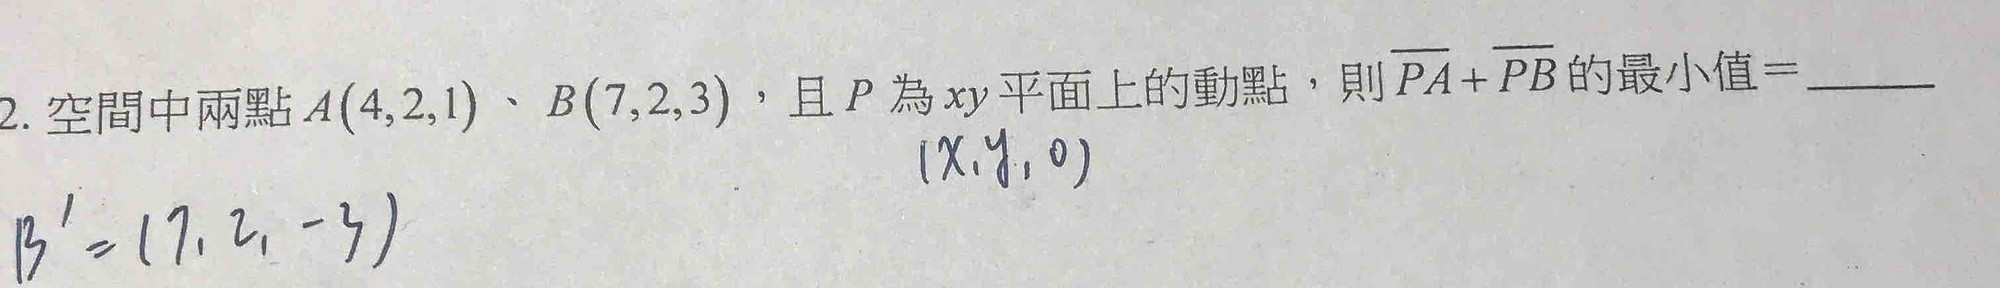 2. 空間中兩點 A(4,2,1)、B(7,2,3)，且 P 為 xy 平面上的動點，則 PA + PB 的最小值＝______
(x, y, 0)
B' = (7, 2, -3)